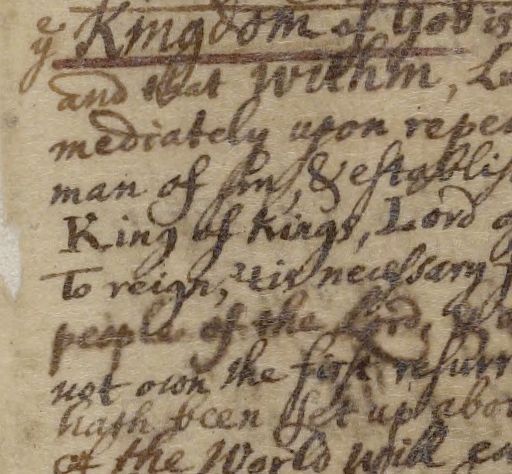 yᵉ Kingdom of God is
and that within, Lu
mediately upon repen
man of sin, & establis
King of Kings, Lord o
To reign, necessary
people of the Lord, &
not own the first resurr
hath been set up abov
of the World will ea